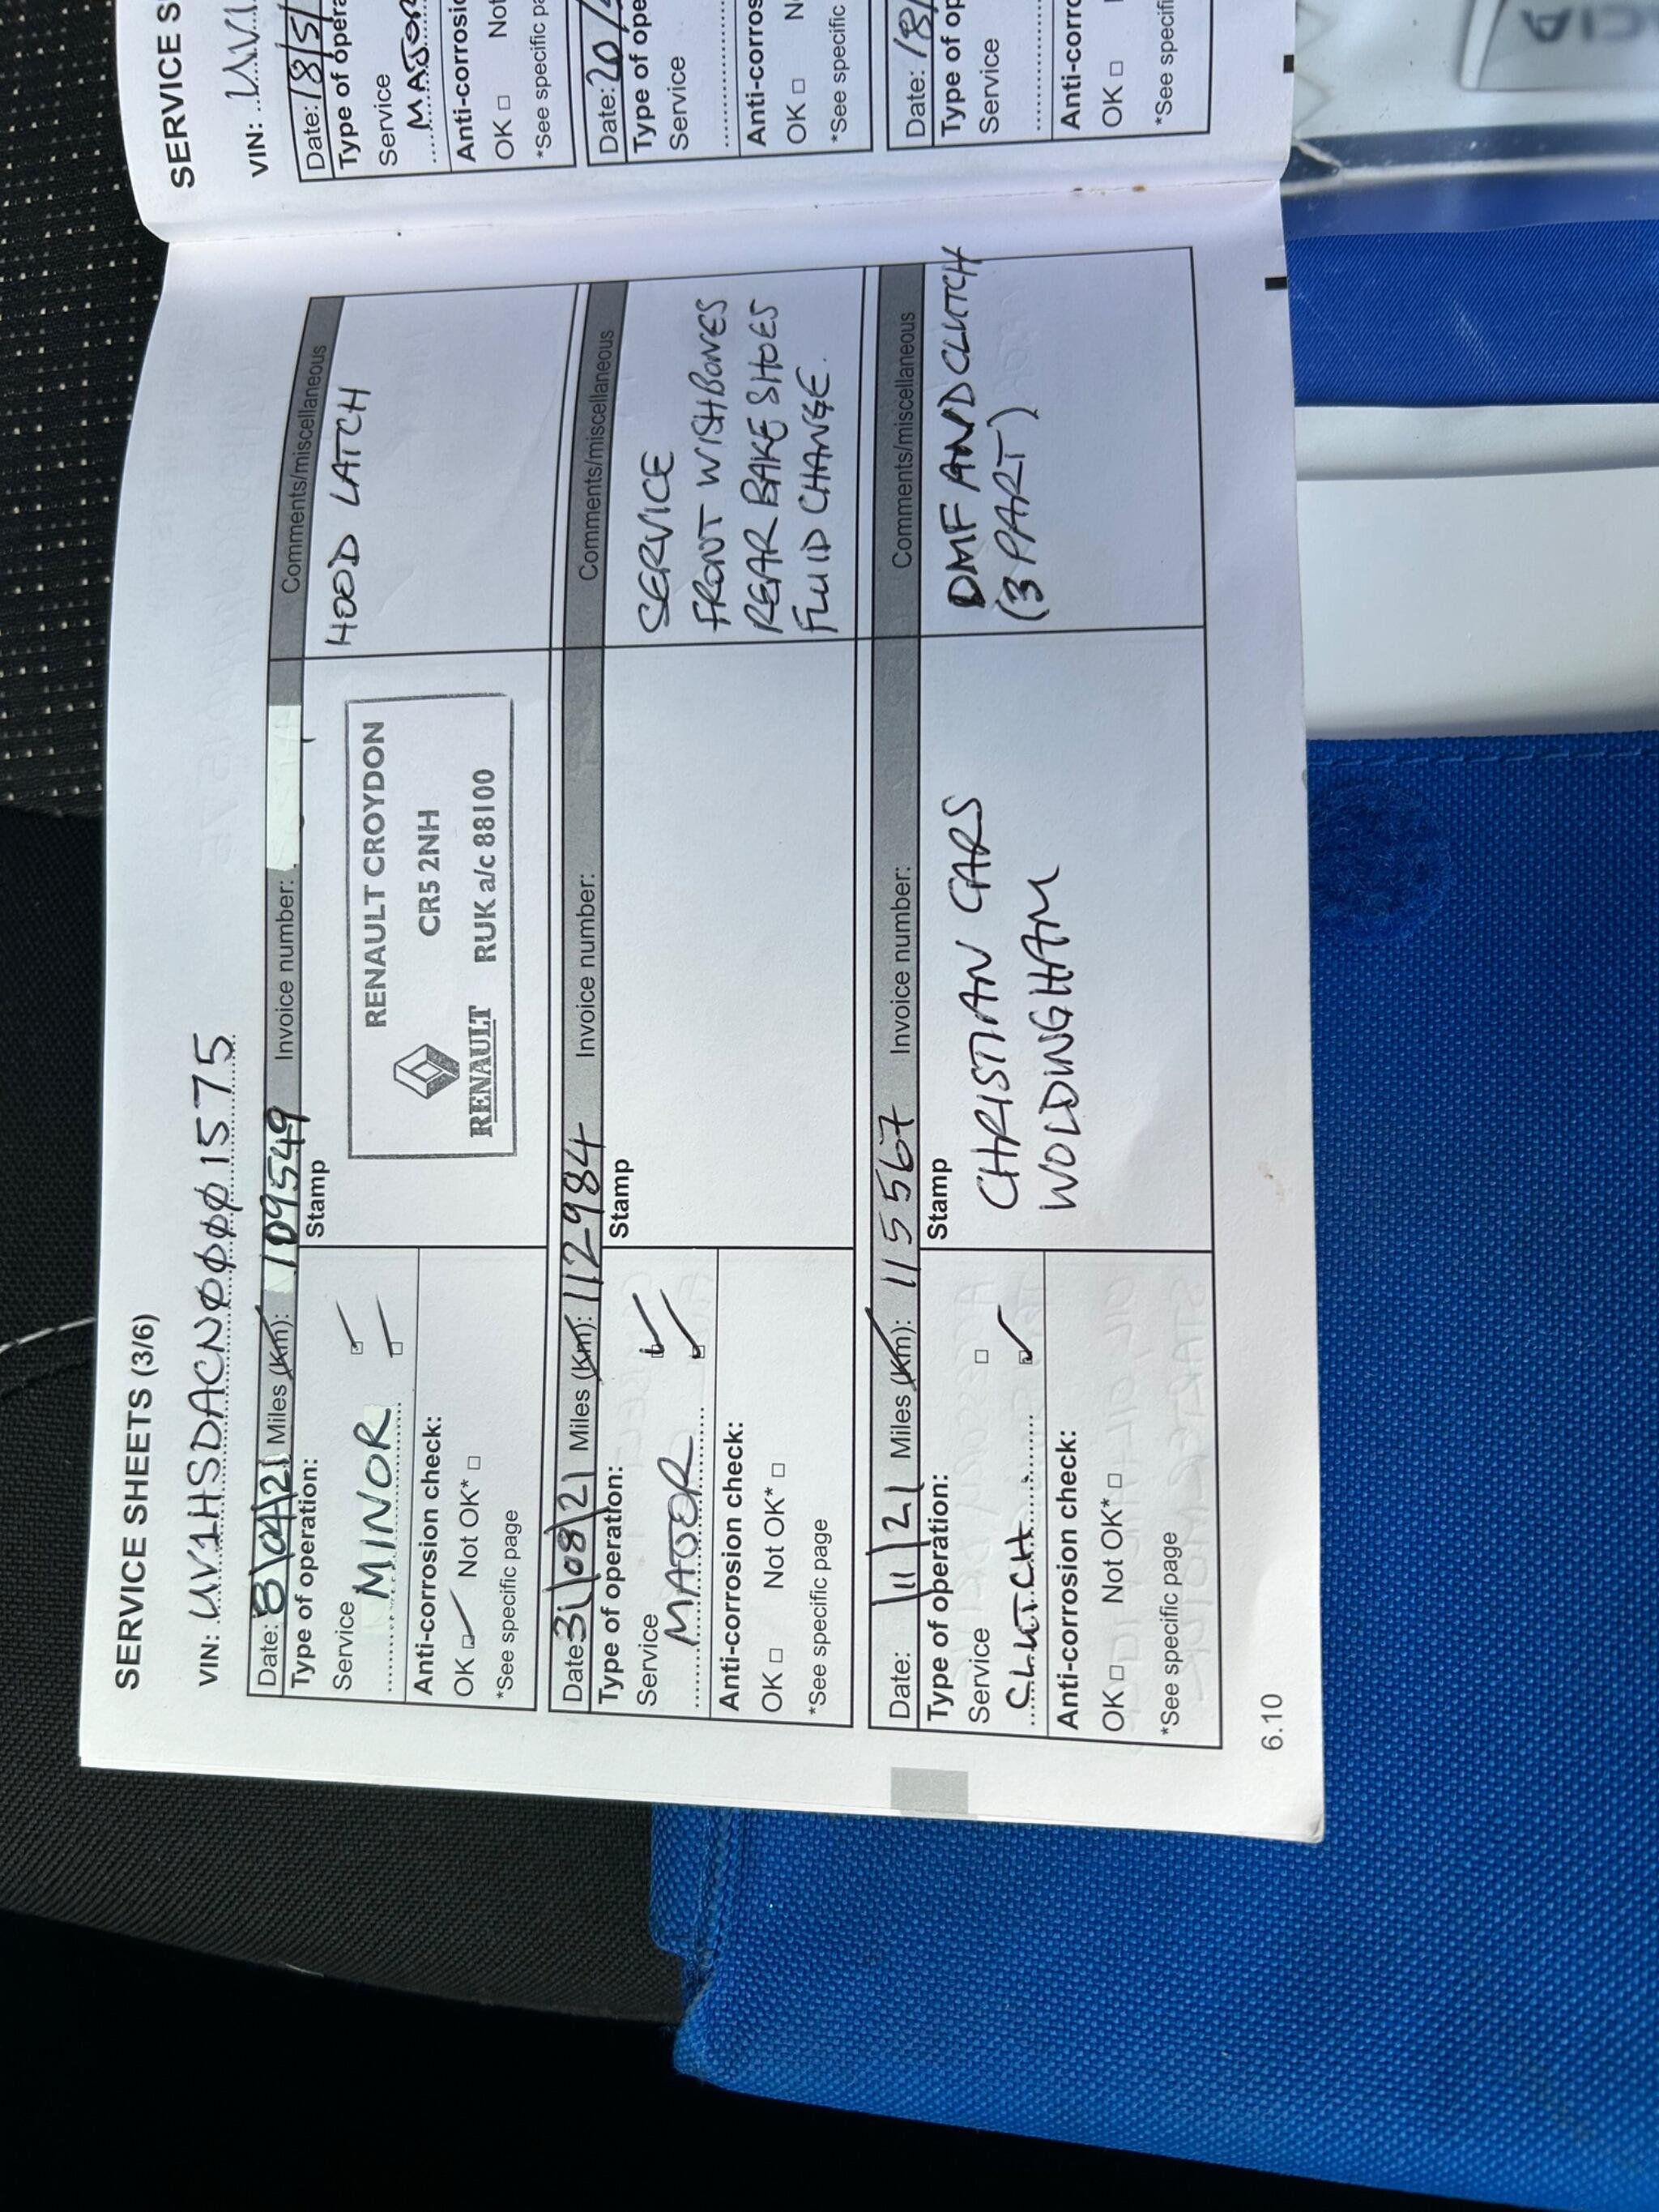 SERVICE SHEETS (3/6)
VIN: UV1HSDACN00015​75
Date: 8\04\21 Miles (Km): 109549 Invoice number:
Comments/miscellaneous
Type of operation:
Service
MINOR
Anti-corrosion check:
OK Not OK*
*See specific page
Stamp
RENAULT CROYDON
CR5 2NH
RENAULT RUK a/c 88100
HOOD LATCH
Date: 31\08\21 Miles (Km): 112984 Invoice number:
Comments/miscellaneous
Type of operation:
Service
MAJOR
Anti-corrosion check:
OK Not OK*
*See specific page
Stamp
SERVICE
FRONT WISHBONES
REAR BAKE SHOES
FLUID CHANGE.
Date: 11/21 Miles (Km): 115567 Invoice number:
Comments/miscellaneous
Type of operation:
Service
CLUTCH
Anti-corrosion check:
OK Not OK*
*See specific page
Stamp
CHRISTIAN CARS
WOLDINGHAM
DMF AND CLUTCH
(3 PART)
6.10
SERVICE S
VIN: UV1
Date: 18/5/
Type of opera
Service
MAJOR
Anti-corrosio
OK Not
*See specific pa
Date: 20/
Type of ope
Service
Anti-corros
OK N
*See specific
Date: 18/
Type of op
Service
Anti-corro
OK
*See specifi
CIA